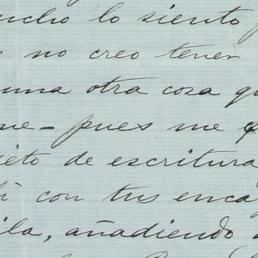 ucho lo siento p
no creo tener
una otra cosa qu
ue - pues me q
ieto de escritura
lí con tus enca
ila, añadiendo a